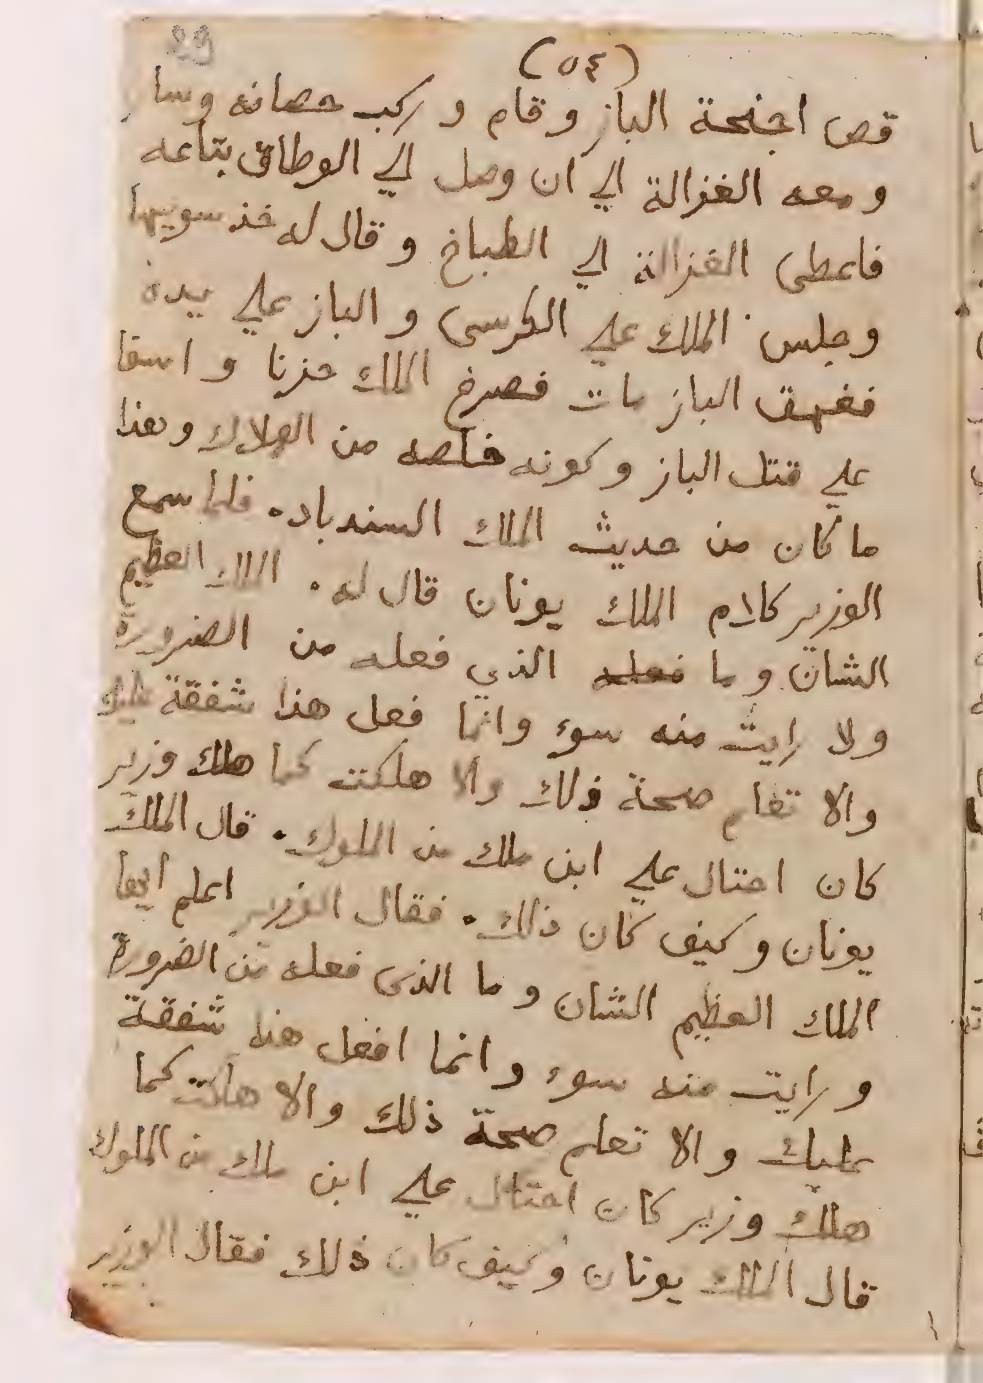 29
(٥٤)
قص اجنحة الباز وقام و ركب حصانه وسار
و معه الغزالة الي ان وصل الي الوطاق بتاعه
فاعطي الغزالة الي الطباخ و قال له خذ سويها
وجلس الملك علي الكرسي و الباز علي يده
فغهق الباز مات فصرخ الملك حزنا و اسفا
علي قتل الباز و كونه خلصه من الهلاك وهذا
ما كان من حديث الملك السندباد. فلما سمع
الوزير كلام الملك يونان قال له. الملك العظيم
الشان و ما فعله الذي فعله من الضرورة
ولا رايت منه سوء وانما فعل هذا شفقة عليك
والا تعلم صحة ذلك والا هلكت كما هلك وزير
كان احتال علي ابن ملك من الملوك. قال الملك
يونان و كيف كان ذلك. فقال الوزير اعلم ايها
الملك العظيم الشان و ما الذي فعله من الضرورة
و رايت منه سوء و انما افعل هذا شفقة
عليك والا تعلم صحة ذلك والا هلكت كما
هلك وزير كان احتال علي ابن ملك من الملوك
قال الملك يونان وكيف كان ذلك فقال الوزير